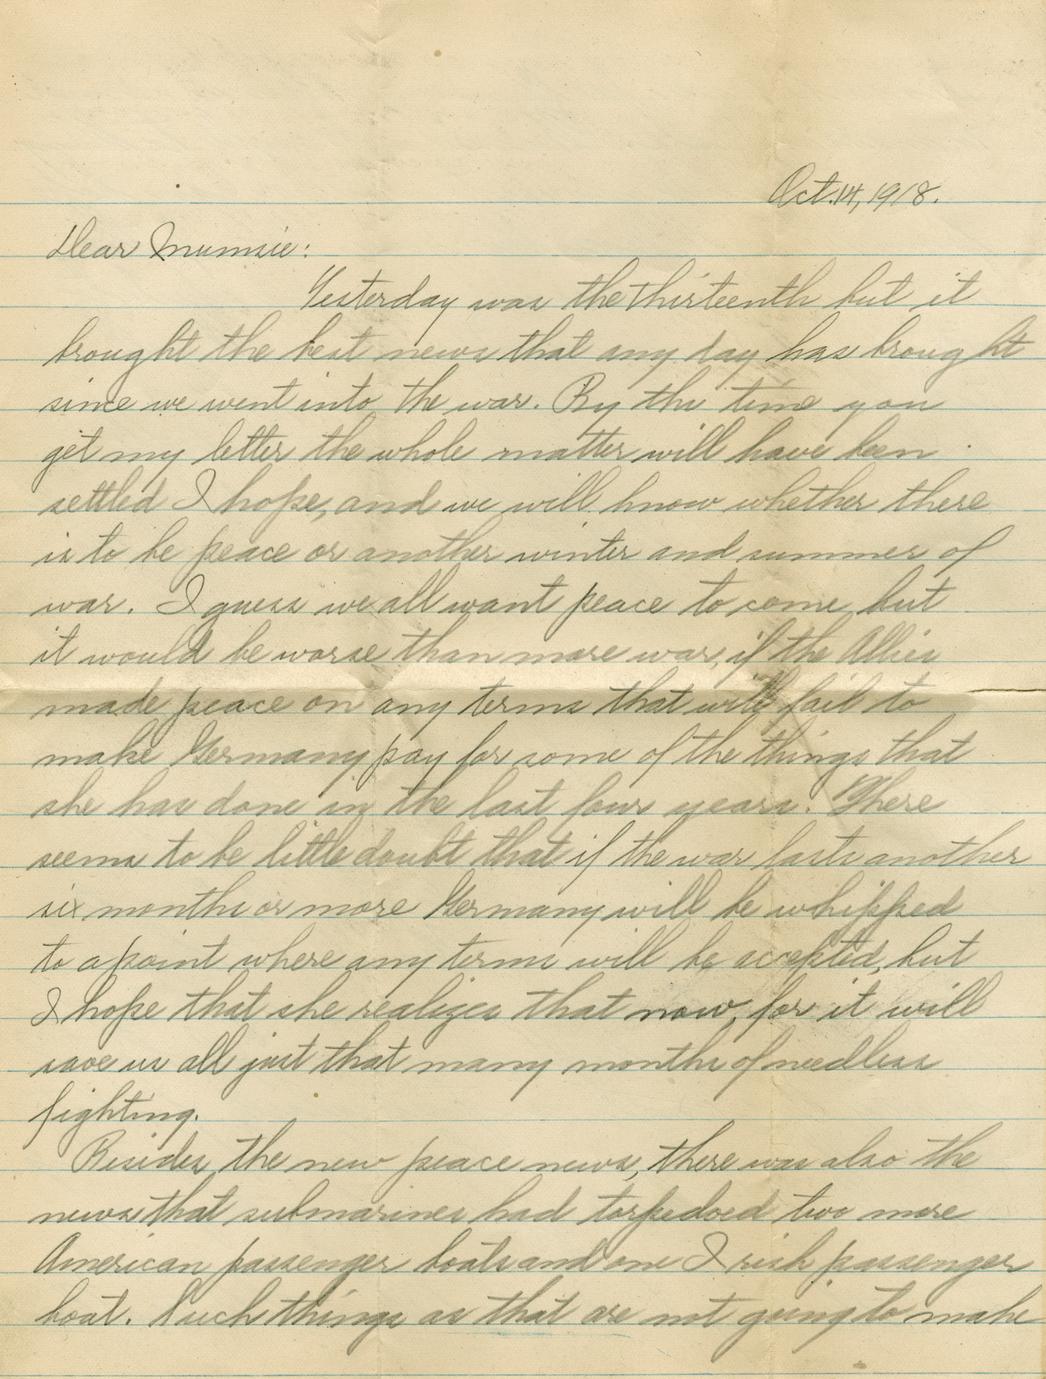 Oct. 14, 1918.
Dear Mumsie:
Yesterday was the thirteenth but it
brought the best news that any day has brought
since we went into the war. By the time you
get my letter the whole matter will have been
settled I hope, and we will know whether there
is to be peace or another winter and summer of
war. I guess we all want peace to come, but
it would be worse than more war, if the Allies
made peace on any terms that will fail to
make Germany pay for some of the things that
she has done in the last four years. There
seems to be little doubt that if the war lasts another
six months or more Germany will be whipped
to a point where any terms will be accepted, but
I hope that she realizes that now, for it will
save us all just that many months of needless
fighting.
Besides, the new peace news, there was also the
news that submarines had torpedoed two more
American passenger boats and one Irish passenger
boat. Such things as that are not going to make